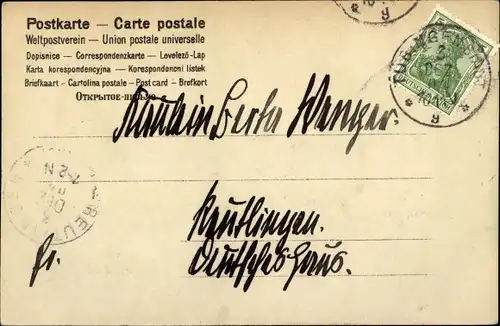 Postkarte — Carte postale
Weltpostverein – Union postale universelle
Dopisnice – Correspondenzkarte – Levelező-Lap
Karta korespondencyjna – Korespondencni listek
Briefkaart – Cartolina postale – Post card – Brefkort
Открытое письмо
Fräulein Berta Wenger.
Reutlingen.
Deutsches Haus.
fr.